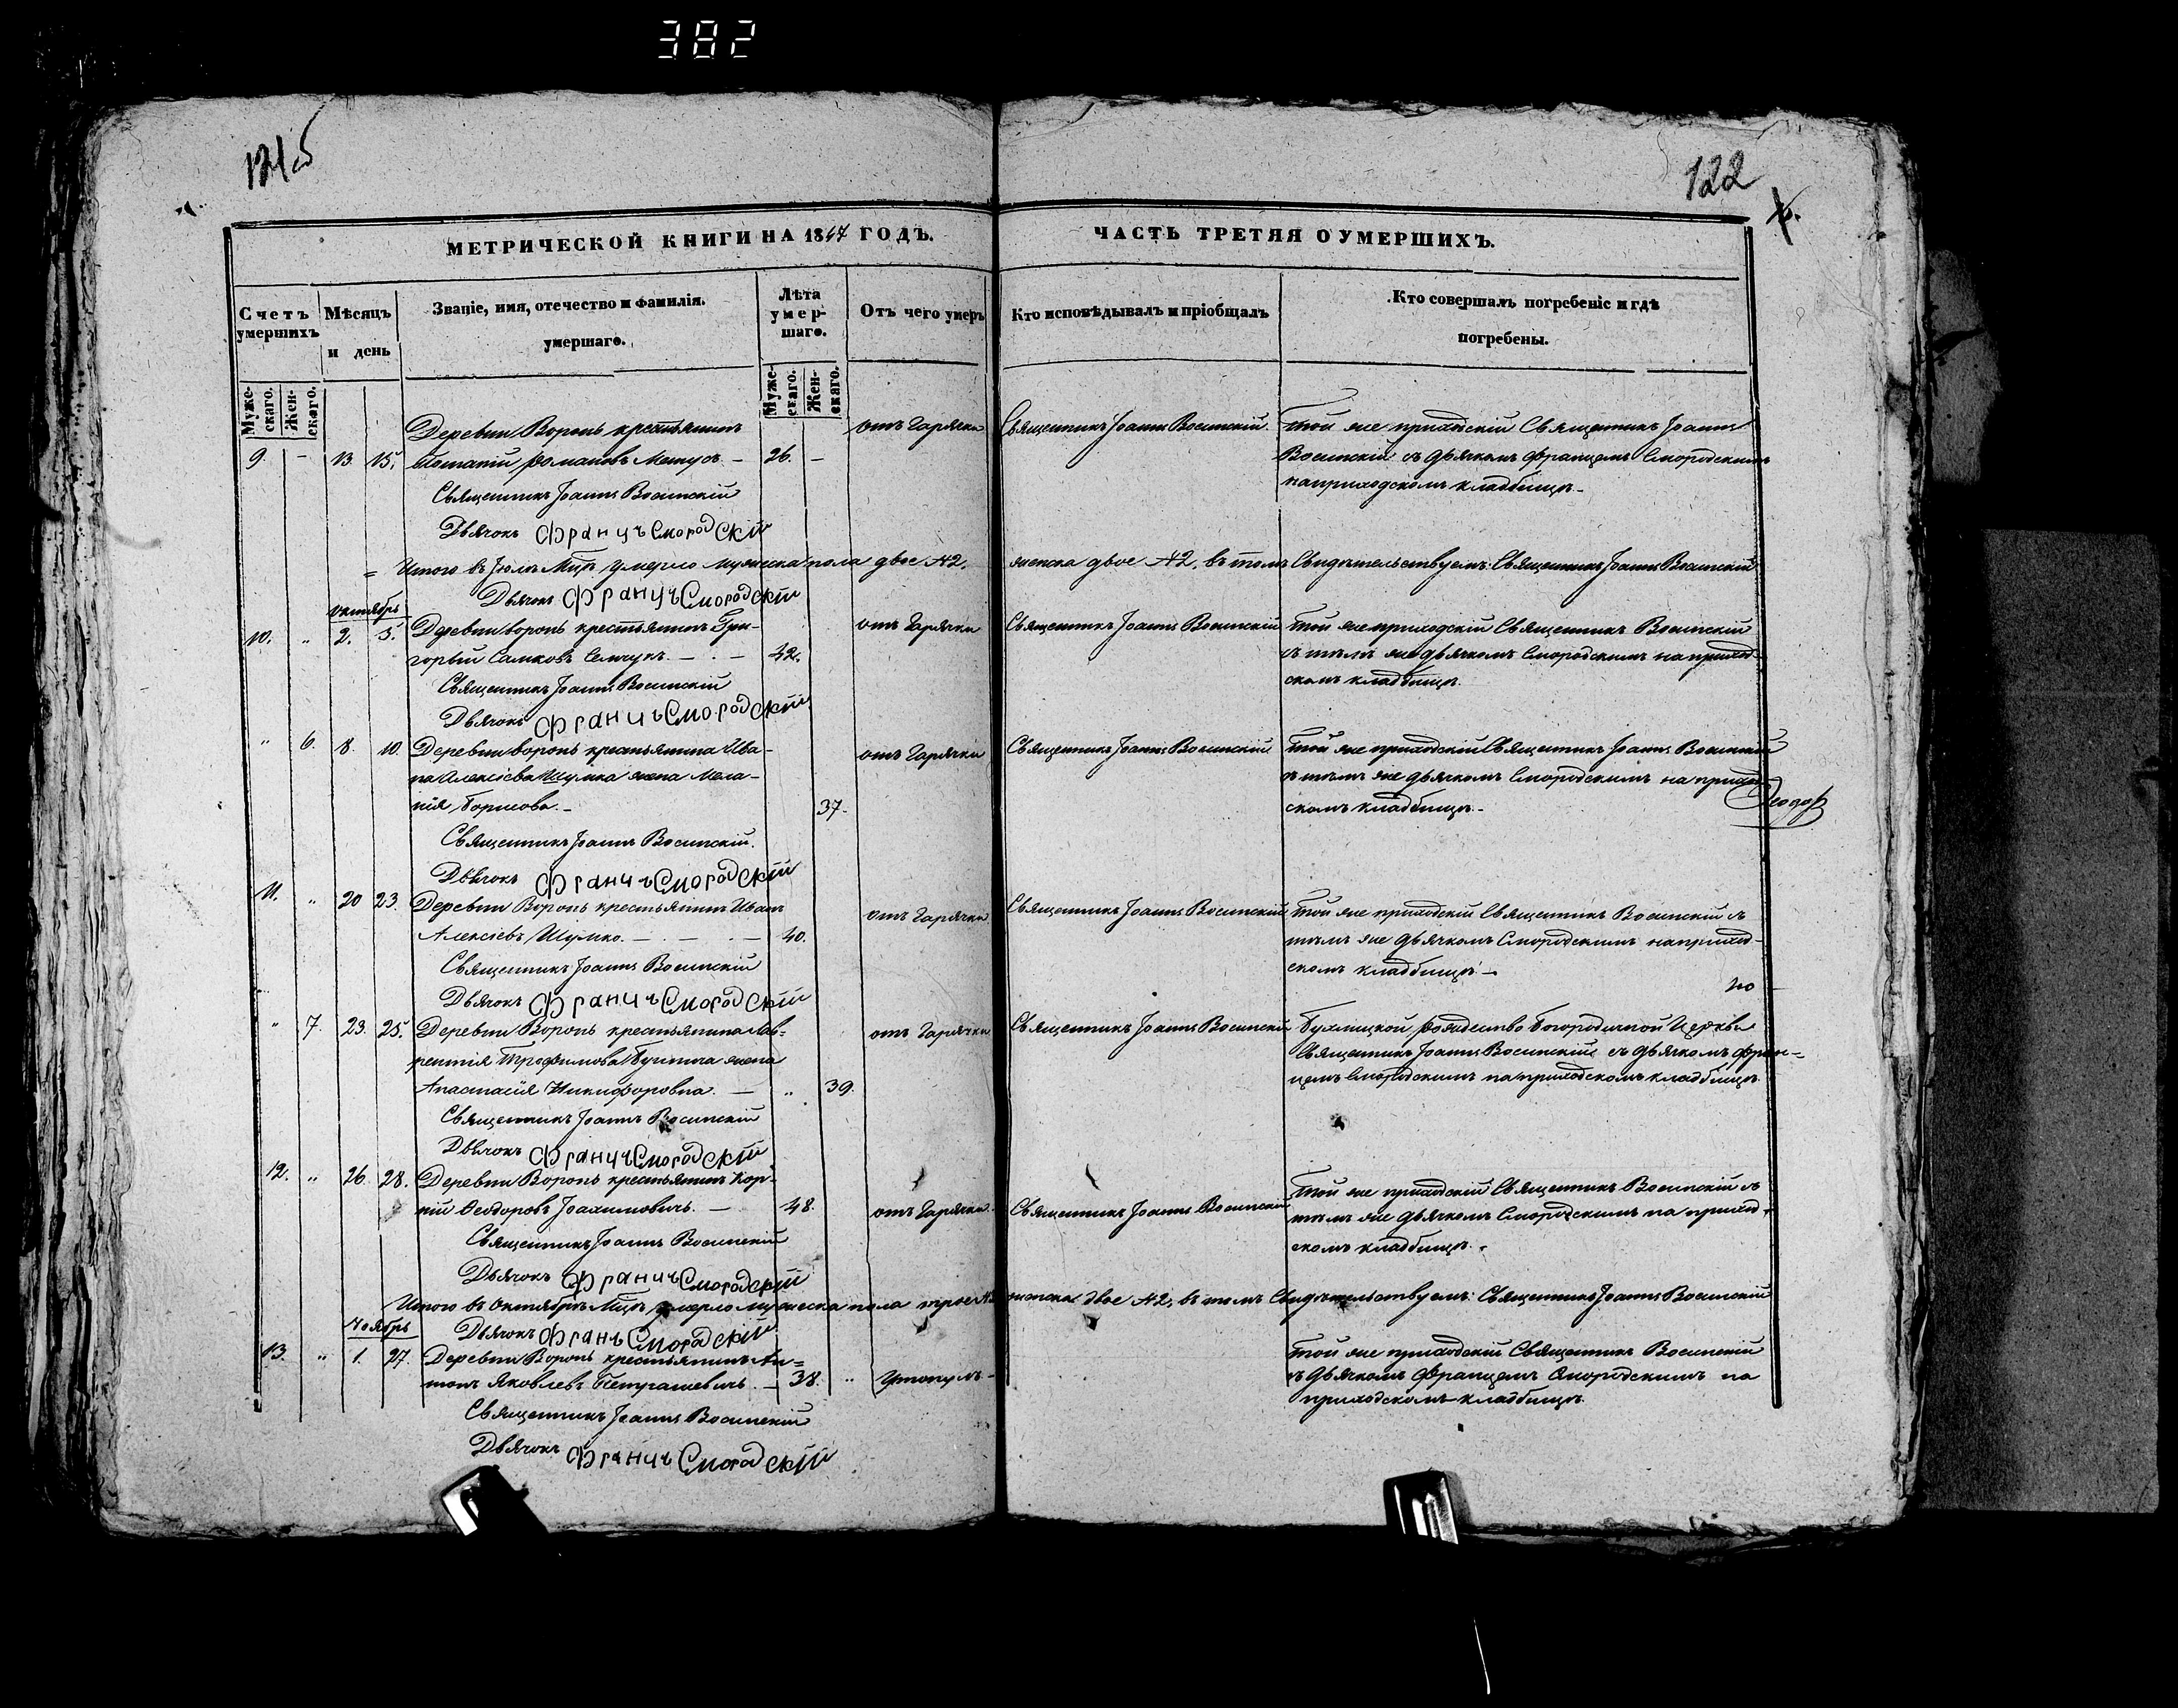 382
122
МЕТРИЧЕСКОЙ КНИГИ НА 1847 ГОДЪ. ЧАСТЬ ТРЕТЯЯ О УМЕРШИХЪ.
Счетъ умершихъ
Мѣсяцъ и день
Званіе, имя, отечество и фамилія. умершаго.
Лѣта умершаго.
Отъ чего умеръ
Кто исповѣдывалъ и пріобщалъ
Кто совершалъ погребеніе и гдѣ погребены.
Мужескаго. Женскаго.
Мужескаго. Женскаго.
Деревни Воронь крестьянинъ отъ Гарячки Священникъ Іоаннъ Восинскій. Той же приходскій Священникъ Іоаннъ
9. – 13. 15. Романовъ 26. – Восинскій съ дьячкомъ Францемъ Смородскимъ
на приходскомъ кладбищѣ.
Священникъ Іоаннъ Восинскій
Дьячокъ Францъ Смородскій
Итого въ Мцѣ умерло мужеска пола двое №2. женска двое №2, въ томъ Свидѣтельствуемъ: Священникъ Іоаннъ Восинскій
Дьячокъ Францъ Смородскій
октябрь
10. " 2. 5. Деревни воронь крестьянинъ Гри- отъ Гарячки Священникъ Іоаннъ Восинскій Той же приходскій Священникъ Восинскій
горій 42. съ тѣмъ же дьячкомъ Смородскимъ на приход-
скомъ кладбищѣ.
Священникъ Іоаннъ Восинскій
Дьячокъ Францъ Смородскій
" 6. 8. 10. Деревни воронь крестьянина Ива- отъ Гарячки Священникъ Іоаннъ Восинскій Той же приходскій Священникъ Іоаннъ Восинскій
на Алексіева Шумка жена Мела- съ тѣмъ же дьячкомъ Смородскимъ на приход-
нія Борисова. 37. скомъ кладбищѣ.
Ѳеодор
Священникъ Іоаннъ Восинскій.
Дьячокъ Францъ Смородскій
11. " 20 23. Деревни Воронь крестьянинъ Иванъ отъ Гарячки Священникъ Іоаннъ Восинскій Той же приходскій Священникъ Восинскій съ
Алексіевъ Шумко. 40. тѣмъ же дьячкомъ Смородскимъ на приход-
скомъ кладбищѣ
Священникъ Іоаннъ Восинскій
Дьячокъ Францъ Смородскій
" 7. 23. 25. Деревни Воронь крестьянина Лав- отъ Гарячки Священникъ Іоаннъ Восинскій Рождество Богородичной Церкви
рентія Трофимова жена Священникъ Іоаннъ Восинскій съ дьячкомъ Фран=
Анастасія Никифоровна. " 39. цемъ Смородскимъ на приходскомъ кладбищѣ.
Священникъ Іоаннъ Восинскій
Дьячокъ Францъ Смородскій
12. " 26. 28. Деревни Воронь крестьянинъ Кор- Той же приходскій Священникъ Восинскій съ
ній Ѳеодоровъ Іоахимовичъ. 48. отъ Гарячки. Священникъ Іоаннъ Восинскій тѣмъ же дьячкомъ Смородскимъ на приход-
скомъ кладбищѣ.
Священникъ Іоаннъ Восинскій
Дьячокъ Францъ Смородскій
Итого въ Октябрѣ Мцѣ умерло мужеска пола трое женска двое №2, въ томъ Свидѣтельствуемъ: Священникъ Іоаннъ Восинскій
Дьячокъ Францъ Смородскій
Ноябрь
13. " 1. 27. Деревни Воронь крестьянинъ Ан= Той же приходскій Священникъ Восинскій
тонъ Яковлевъ 38. " утонулъ съ дьячкомъ Францемъ Смородскимъ на
приходскомъ кладбищѣ.
Священникъ Іоаннъ Восинскій
Дьячокъ Францъ Смородскій